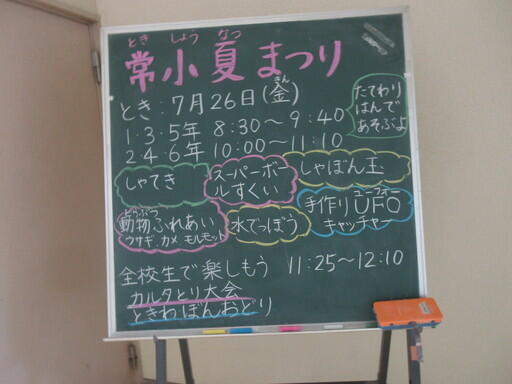 とき しょう なつ
常小夏まつり
きん
とき：7月26日(金)
1・3・5年 8:30～9:40
2・4・6年 10:00～11:10
たてわり
はんで
あそぶよ
しゃてき
スーパーボー
ルすくい
しゃぼん玉
どうぶつ
動物ふれあい
ウサギ、カメ モルモット
水でっぽう
ユーフォー
手作りUFO
キャッチャー
全校生で楽しもう 11:25～12:10
カルタとり大会
ときわぼんおどり